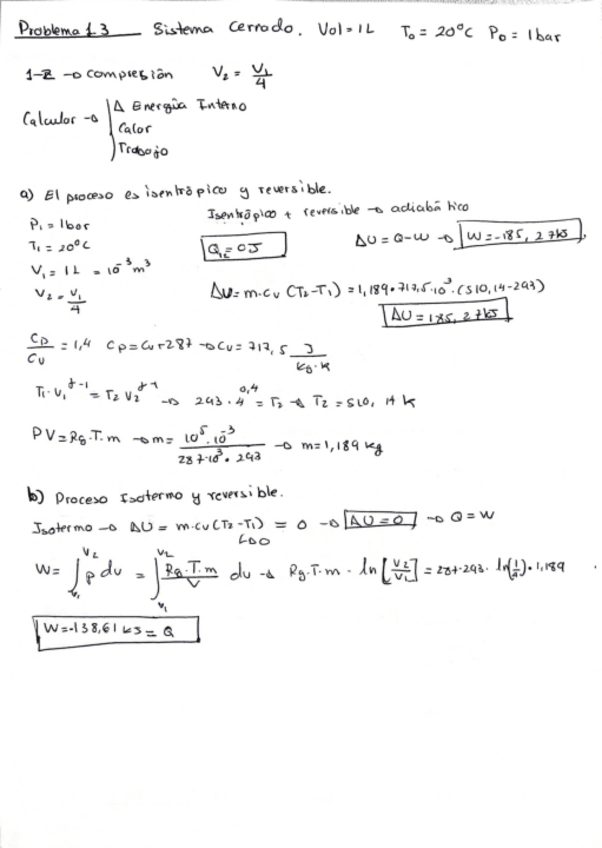 Problema 1.3 Sistema Cerrado. Vol=1L T₀ = 20ºC P₀ = 1bar
1-2 → compresión V₂ = V₁/4
Calcular → Δ Energía Interno
Calor
Trabajo
a) El proceso es isentrópico y reversible.
P₁ = 1bar Isentrópico + reversible → adiabático
T₁ = 20ºC Q₁₂ = 0J ΔU = Q-W → W=-185,27kJ
V₁ = 1L = 10⁻³ m³
V₂ = V₁/4 ΔU = m·cv (T₂-T₁) = 1,189·717,5·10⁻³·(510,14-293)
ΔU = 185,27kJ
Cp/Cv = 1,4 Cp = Cv+287 → Cv = 717,5 J/kg·K
T₁·V₁^γ-1 = T₂ V₂^γ-1 → 293·4^0,4 = T₂ → T₂ = 510,14 K
PV = Rg.T.m → m = 10⁵·10⁻³/287·10³·293 → m = 1,189 kg
b) Proceso Isotermo y reversible.
Isotermo → ΔU = m·cv (T₂-T₁) = 0 → ΔU = 0 → Q = W
W = ∫V₁^V₂ p dv = ∫V₁^V₂ Rg.T.m/V dv → Rg.T.m · ln[V₂/V₁] = 287·293·ln(1/4)·1,189
W=-138,61 kJ = Q